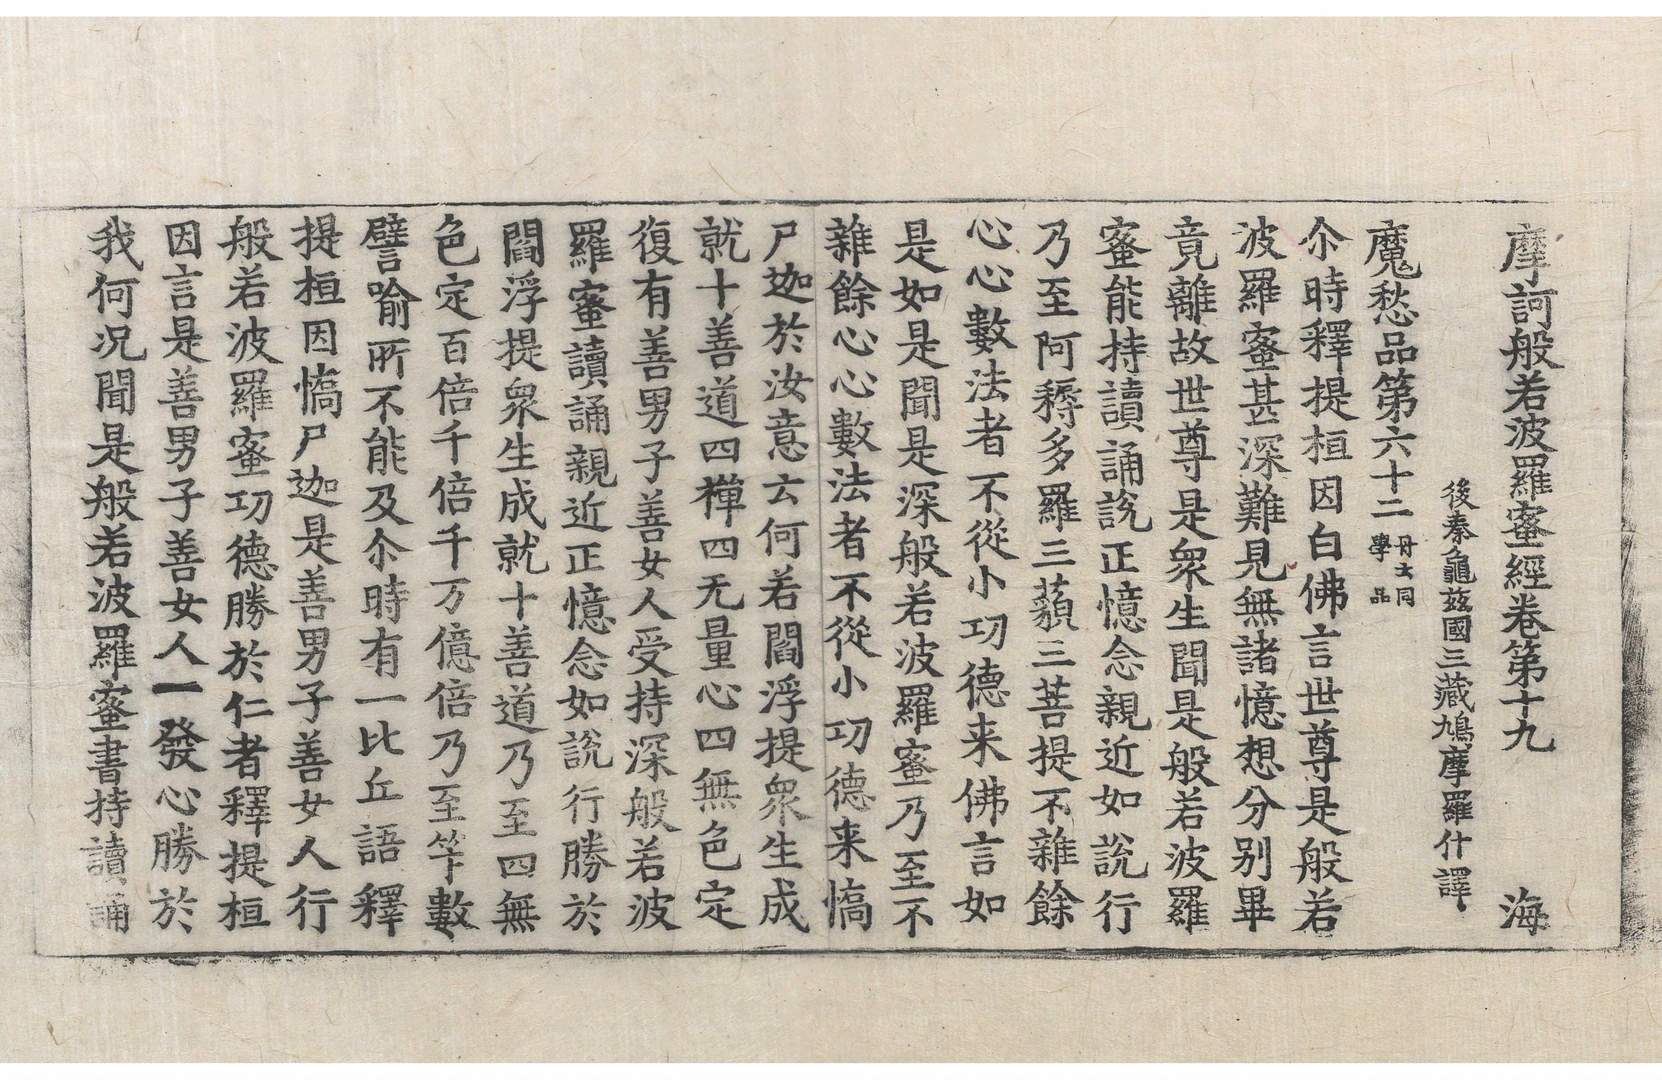 摩訶般若波羅蜜經卷第十九　海
後秦龜茲國三藏鳩摩羅什譯
魔愁品第六十二 丹本同學品
尒時釋提桓因白佛言世尊是般若
波羅蜜甚深難見無諸憶想分別畢
竟離故世尊是衆生聞是般若波羅
蜜能持讀誦說正憶念親近如說行
乃至阿耨多羅三藐三菩提不雜餘
心心數法者不從小功德来佛言如
是如是聞是深般若波羅蜜乃至不
雜餘心心數法者不從小功德来憍
尸迦於汝意云何若閻浮提衆生成
就十善道四禪四无量心四無色定
復有善男子善女人受持深般若波
羅蜜讀誦親近正憶念如說行勝於
閻浮提衆生成就十善道乃至四無
色定百倍千倍千万億倍乃至筭數
譬喻所不能及尒時有一比丘語釋
提桓因憍尸迦是善男子善女人行
般若波羅蜜功德勝於仁者釋提桓
因言是善男子善女人一發心勝於
我何況聞是般若波羅蜜書持讀誦